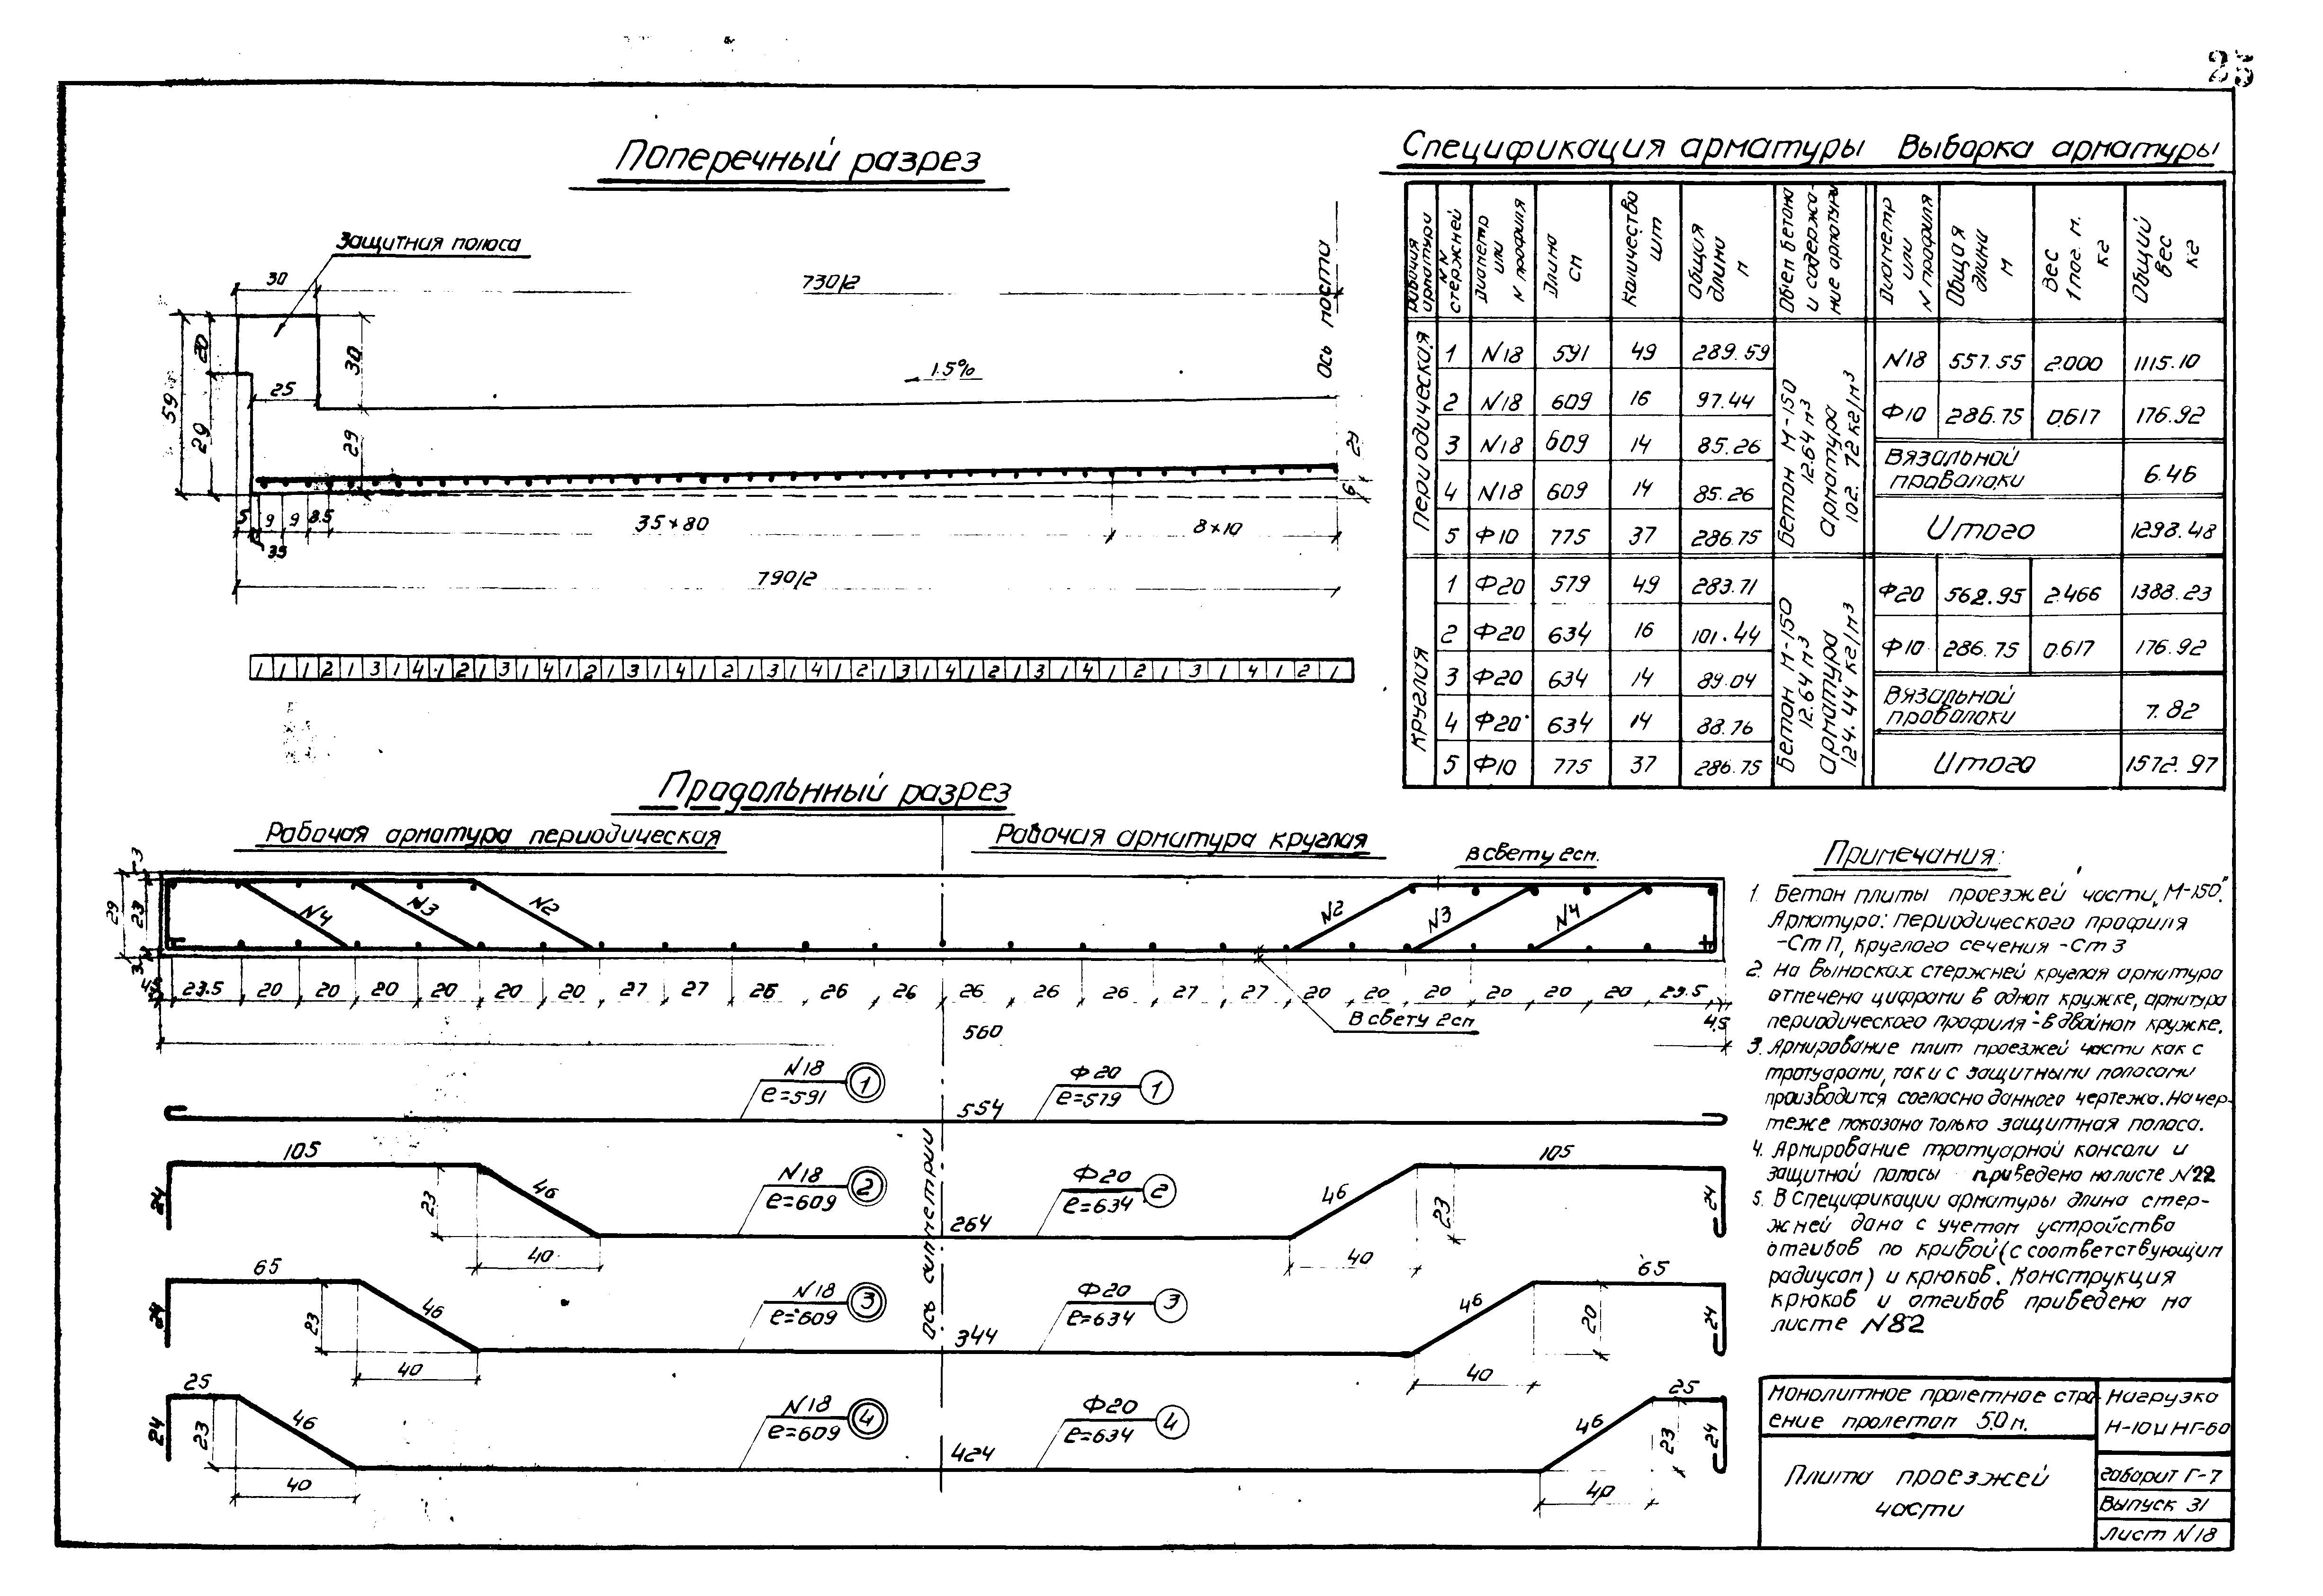 25
Поперечный разрез
Защитная полоса
30
730/2
Ось моста
59
20
29
25
30
29
1.5%
29
6
5
9
9
8.5
35
35×80
8×10
790/2
1 1 1 2 1 3 1 4 1 2 1 3 1 4 1 2 1 3 1 4 1 2 1 3 1 4 1 2 1 3 1 4 1 2 1 3 1 4 1 2 1 3 1 4 1 2 1
Спецификация арматуры
Рабочая арматура
NN стержней
Диаметр или N профиля
Длина см
Количество шт
Общая длина м
Объем бетона и содержание арматуры
Периодическая
1 N18 591 49 289.59
2 N18 609 16 97.44
3 N18 609 14 85.26
4 N18 609 14 85.26
5 Ф10 775 37 286.75
Бетон М-150
12.64 м³
Арматура
102.72 кг/м³
круглая
1 Ф20 579 49 283.71
2 Ф20 634 16 101.44
3 Ф20 634 14 89.04
4 Ф20 634 14 88.76
5 Ф10 775 37 286.75
Бетон М-150
12.64 м³
Арматура
124.44 кг/м³
Выборка арматуры
Диаметр или N профиля
Общая длина м
Вес 1 пог. м. кг
Общий вес кг
N18 557.55 2.000 1115.10
Ф10 286.75 0.617 176.92
Вязальной проволоки 6.46
Итого 1298.48
Ф20 562.95 2.466 1388.23
Ф10 286.75 0.617 176.92
Вязальной проволоки 7.82
Итого 1572.97
Продольнный разрез
Рабочая арматура периодическая
Рабочая арматура круглая
в свету 2см.
29
3
23
3
N4
N3
N2
N2
N3
N4
4.5 23.5 20 20 20 20 20 20 27 27 26 26 26 26 26 26 27 27 20 20 20 20 20 20 23.5 4.5
в свету 2см
560
N18
е=591
1
554
Ф20
е=579
1
ось симметрии
105
24
23
46
40
N18
е=609
2
264
Ф20
е=634
2
46
40
23
105
24
65
24
23
46
40
N18
е=609
3
344
Ф20
е=634
3
46
40
20
65
24
25
24
23
46
40
N18
е=609
4
424
Ф20
е=634
4
46
40
23
25
24
Примечания:
1. Бетон плиты проезжей части „М-150".
Арматура: периодического профиля
-Ст П, круглого сечения -Ст 3
2. На выносках стержней круглая арматура
отмечена цифрами в одном кружке, арматура
периодического профиля - в двойном кружке.
3. Армирование плит проезжей части как с
тротуарами, так и с защитными полосами
производится согласно данного чертежа. На чер-
теже показана только защитная полоса.
4. Армирование тротуарной консоли и
защитной полосы приведено на листе N22
5. В спецификации арматуры длина стер-
жней дана с учетом устройства
отгибов по кривой (с соответствующим
радиусом) и крюков. Конструкция
крюков и отгибов приведена на
листе N82
Монолитное пролетное стро-
ение пролетом 5.0 м.
Нагрузка
Н-10 и НГ-60
Плита проезжей
части
габарит Г-7
Выпуск 31
Лист N18